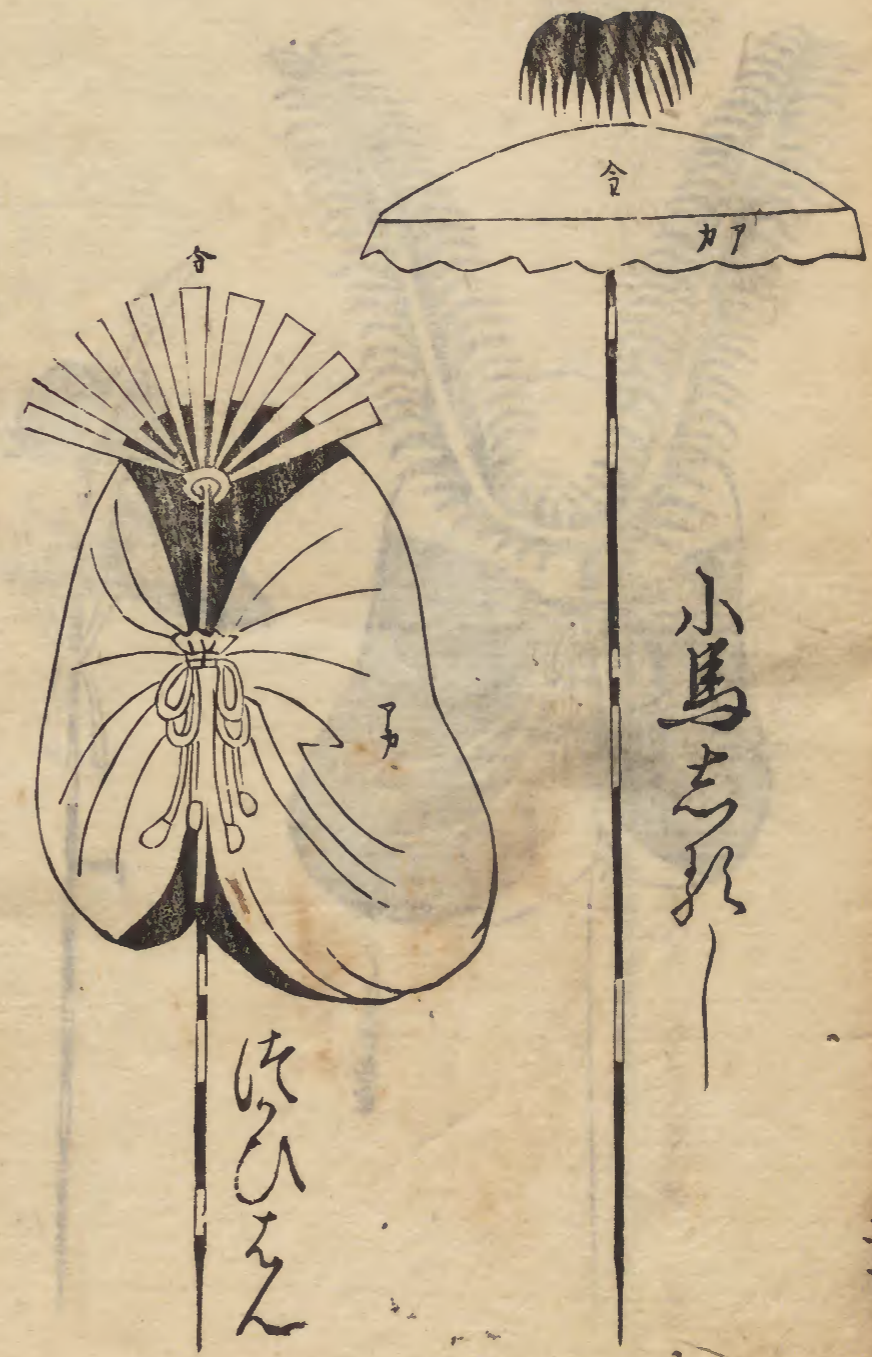 金
アカ
小馬志るし
金
アカ
つかひはん